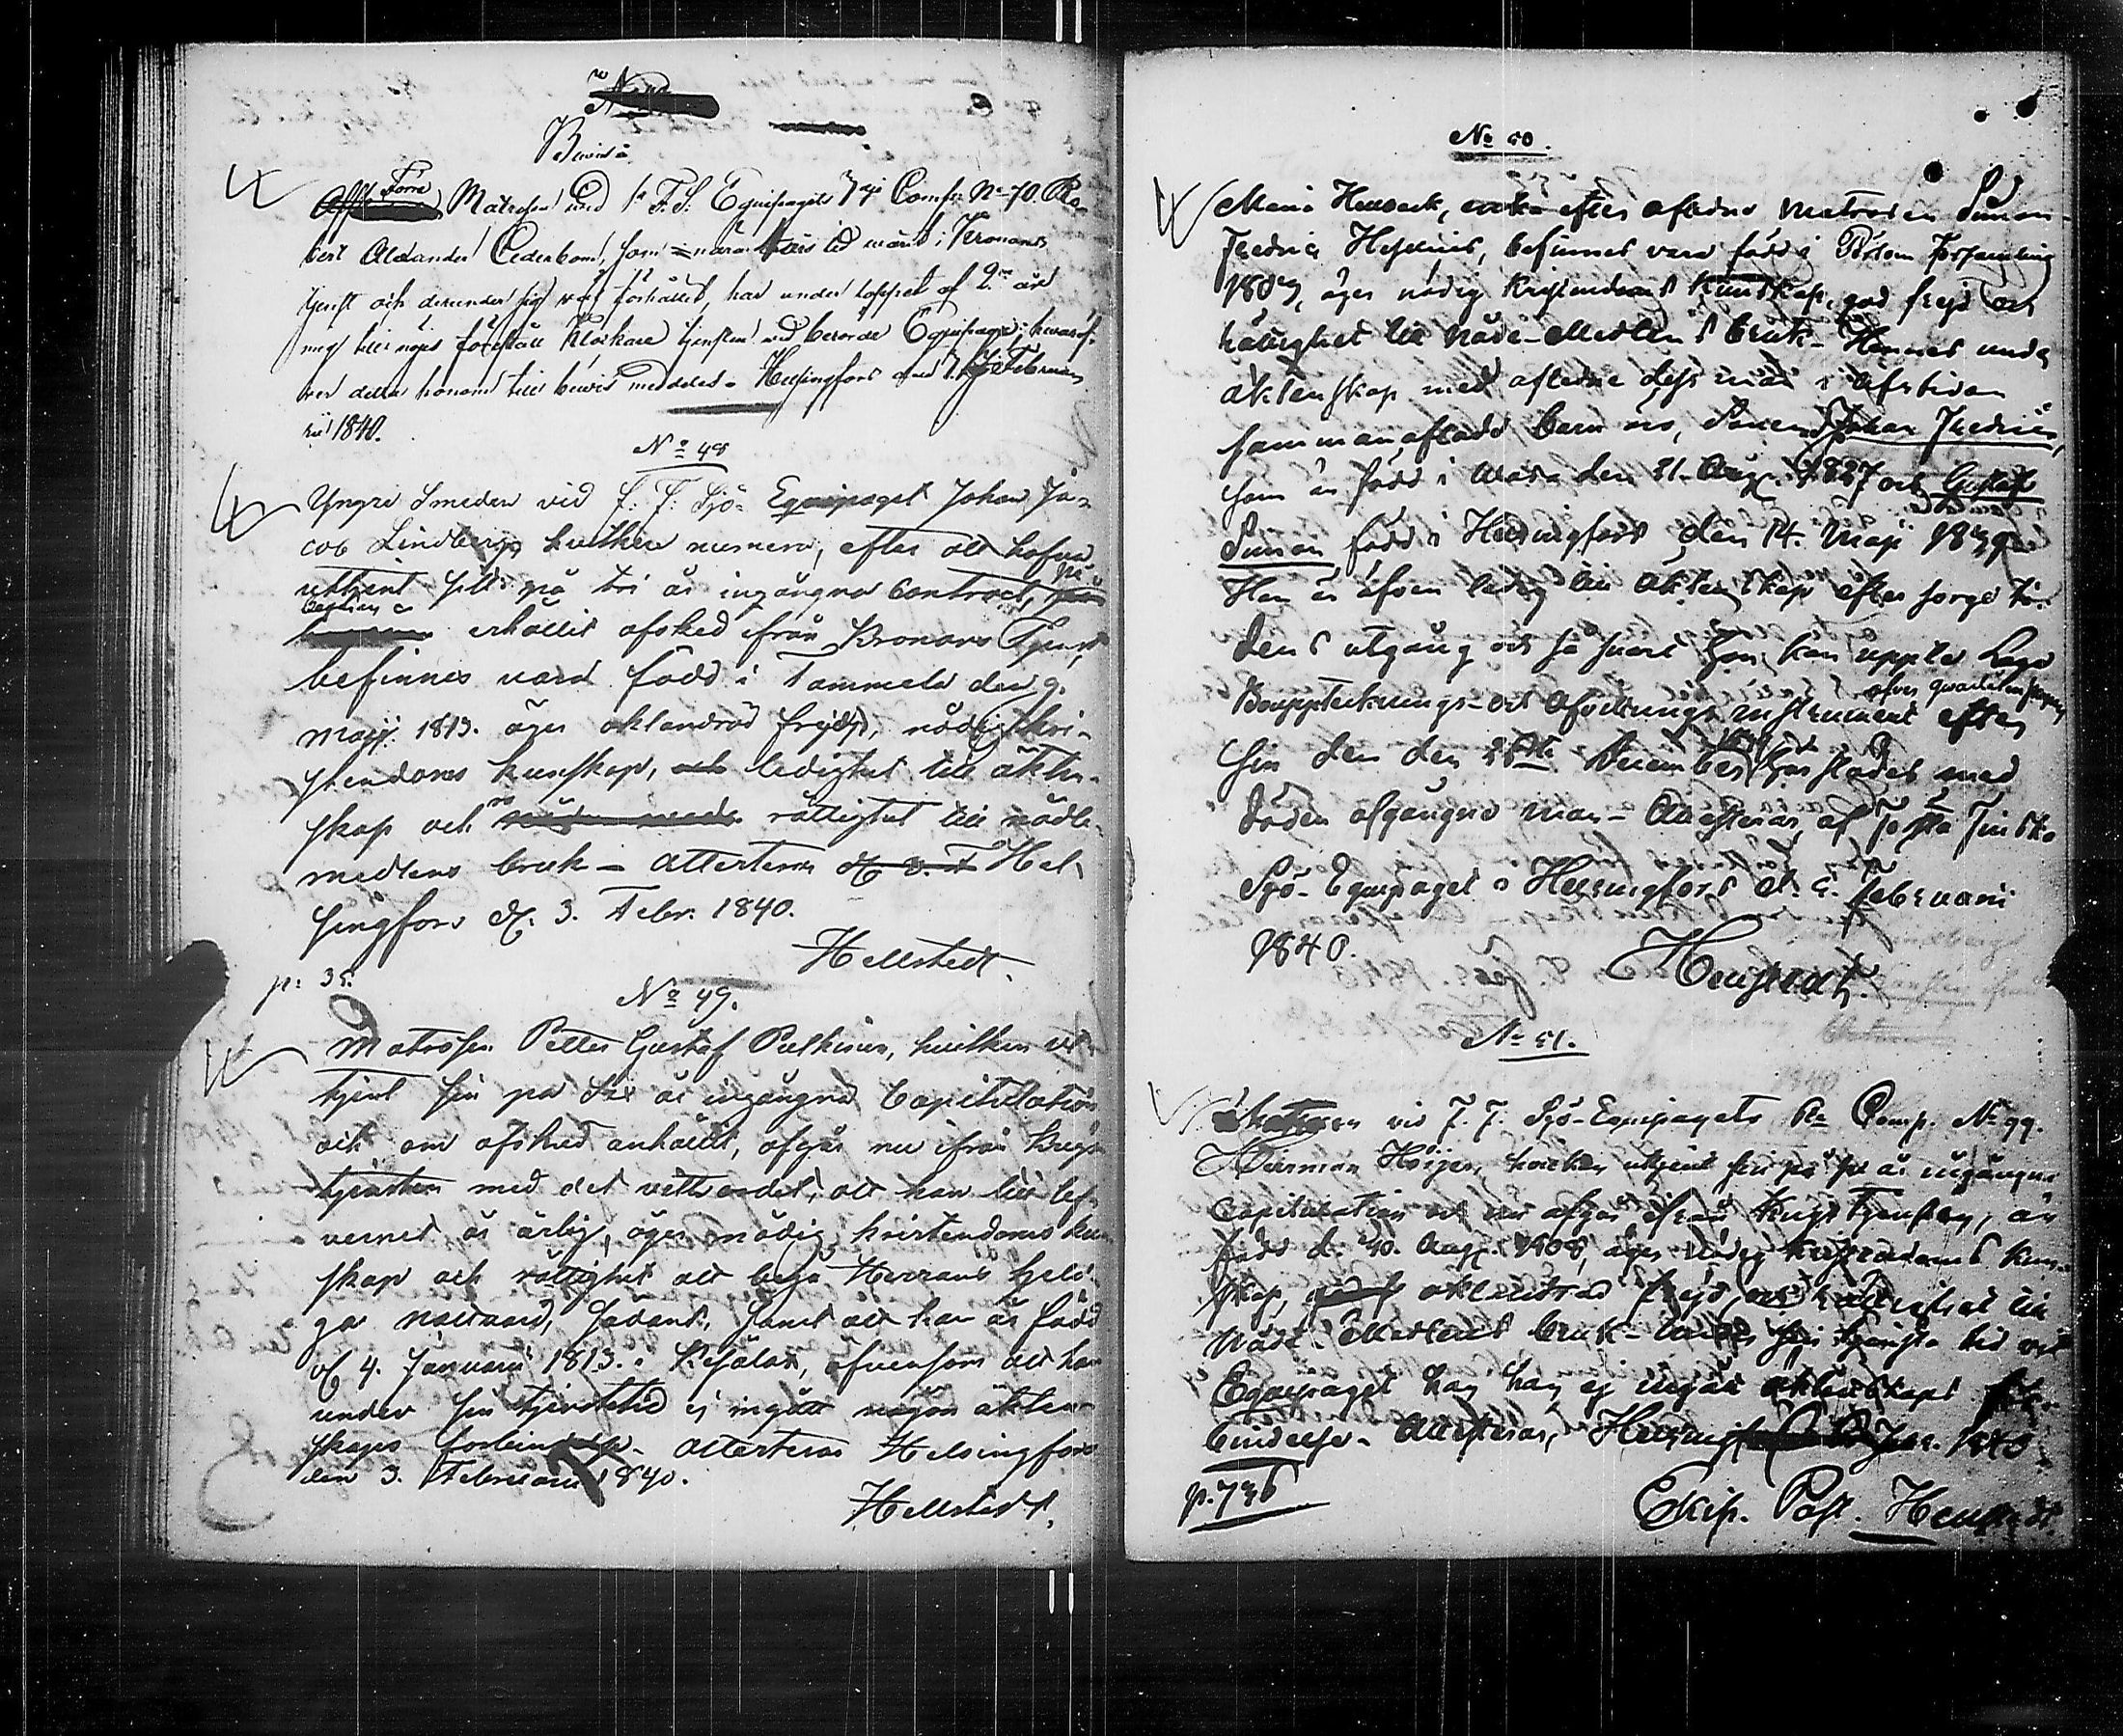 Bevis
Förra Matrosen vid 1a F. S. Equipagets 7de Comp: No 70. Ro-
bert Alexander Cederbom, som nära års tid warit i Kronans
tjenst och derunder sig väl förhållit, har under loppet af 2ne års
mig till nöjes förestått Klockare tjensten vid berörde Equipage; hvarof-
ver detta honom till bevis meddelas. Helsingfors den Februa-
rii 1840.
No 48
Yngre Smeden vid F. F. Sjö-Equipaget Johan Ja-
cob Lindberg, hvilken numera, efter att hafva
uttjent sitt på tri år ingångna Contract, på
begäran erhållit afsked ifrån Kronans Tjenst,
befinnes vara född i Tammela den 9.
Maji 1813. äger oklandrad frejd, nödig Kri-
stendoms kunskap, ledighet till äkten-
skap och rättighet till nåde-
medlens bruk – Attesteras Hel-
singfors d. 3. Febr. 1840.
Hellstedt.
p: 35.
No 49.
Matrosen Petter Gustaf Pulkinen, hvilken ut-
tjent sin på sex år ingångna Capitulation
och om afsked anhållit, afgår nu ifrån Krigs
tjensten med det vittnordet, att han till lef-
vernet är ärlig, äger nödig kristendoms kun-
skap och rättighet att begå Herrans helo-
ga nattvard, sådant, samt att han är född
d. 4. Januarii 1813. i Kesälax, äfvensom att han
under sin tjenstetid ej ingått någon äkten-
skaps förbindelse. Attesteras Helsingfors
den 3. Februarii 1840.
Hellstedt.
No 50.
Maria Henseck, enka efter aflidne Matrosen Simon
Fredric Hejenius, befinnes vara född i Församling
180, äger nödig Kristendoms Kunskap, god frejd och
rättighet till Nåde-Medlens bruk – Hennes under
äktenskap med aflidne dess man i lifstiden
sammanaflade barn äro, Sönerne Johan Fredric,
som är född i Wasa den 21. Aug. 1837 och Gustaf
Simon född i Helsingfors den 14. Maji 1839
Hon är äfven ledig till äktenskap efter sorge ti-
dens utgång och så snart hon kan uppte Laga
Bouppteknings- och Afvittrings instrument efter
sin den December här stades med
döden afgångne man – Attesteras, af Första Finska
Sjö-Equipaget i Helsingfors d. Februarii
1840.
Hellstedt.
No 51.
vid F. F. Sjö-Equipagets Comp. No 99.
Herman Höijer, hvilken uttjent sin på år ingångna
Capitulation och nu afgår ifrån Krigstjensten, är
född d. 30. Aug. 1808, äger nödig kristendoms kun-
skap, oklandrad frejd, och rättighet till
Nåde-Medlens bruk – Under sin tjenste tid vid
Equipaget har han ej ingått äktenskaps för-
bindelse. Attesteras, Helsingfors Febr. 1840
p. 736
Ekip. Past. Hellstedt.